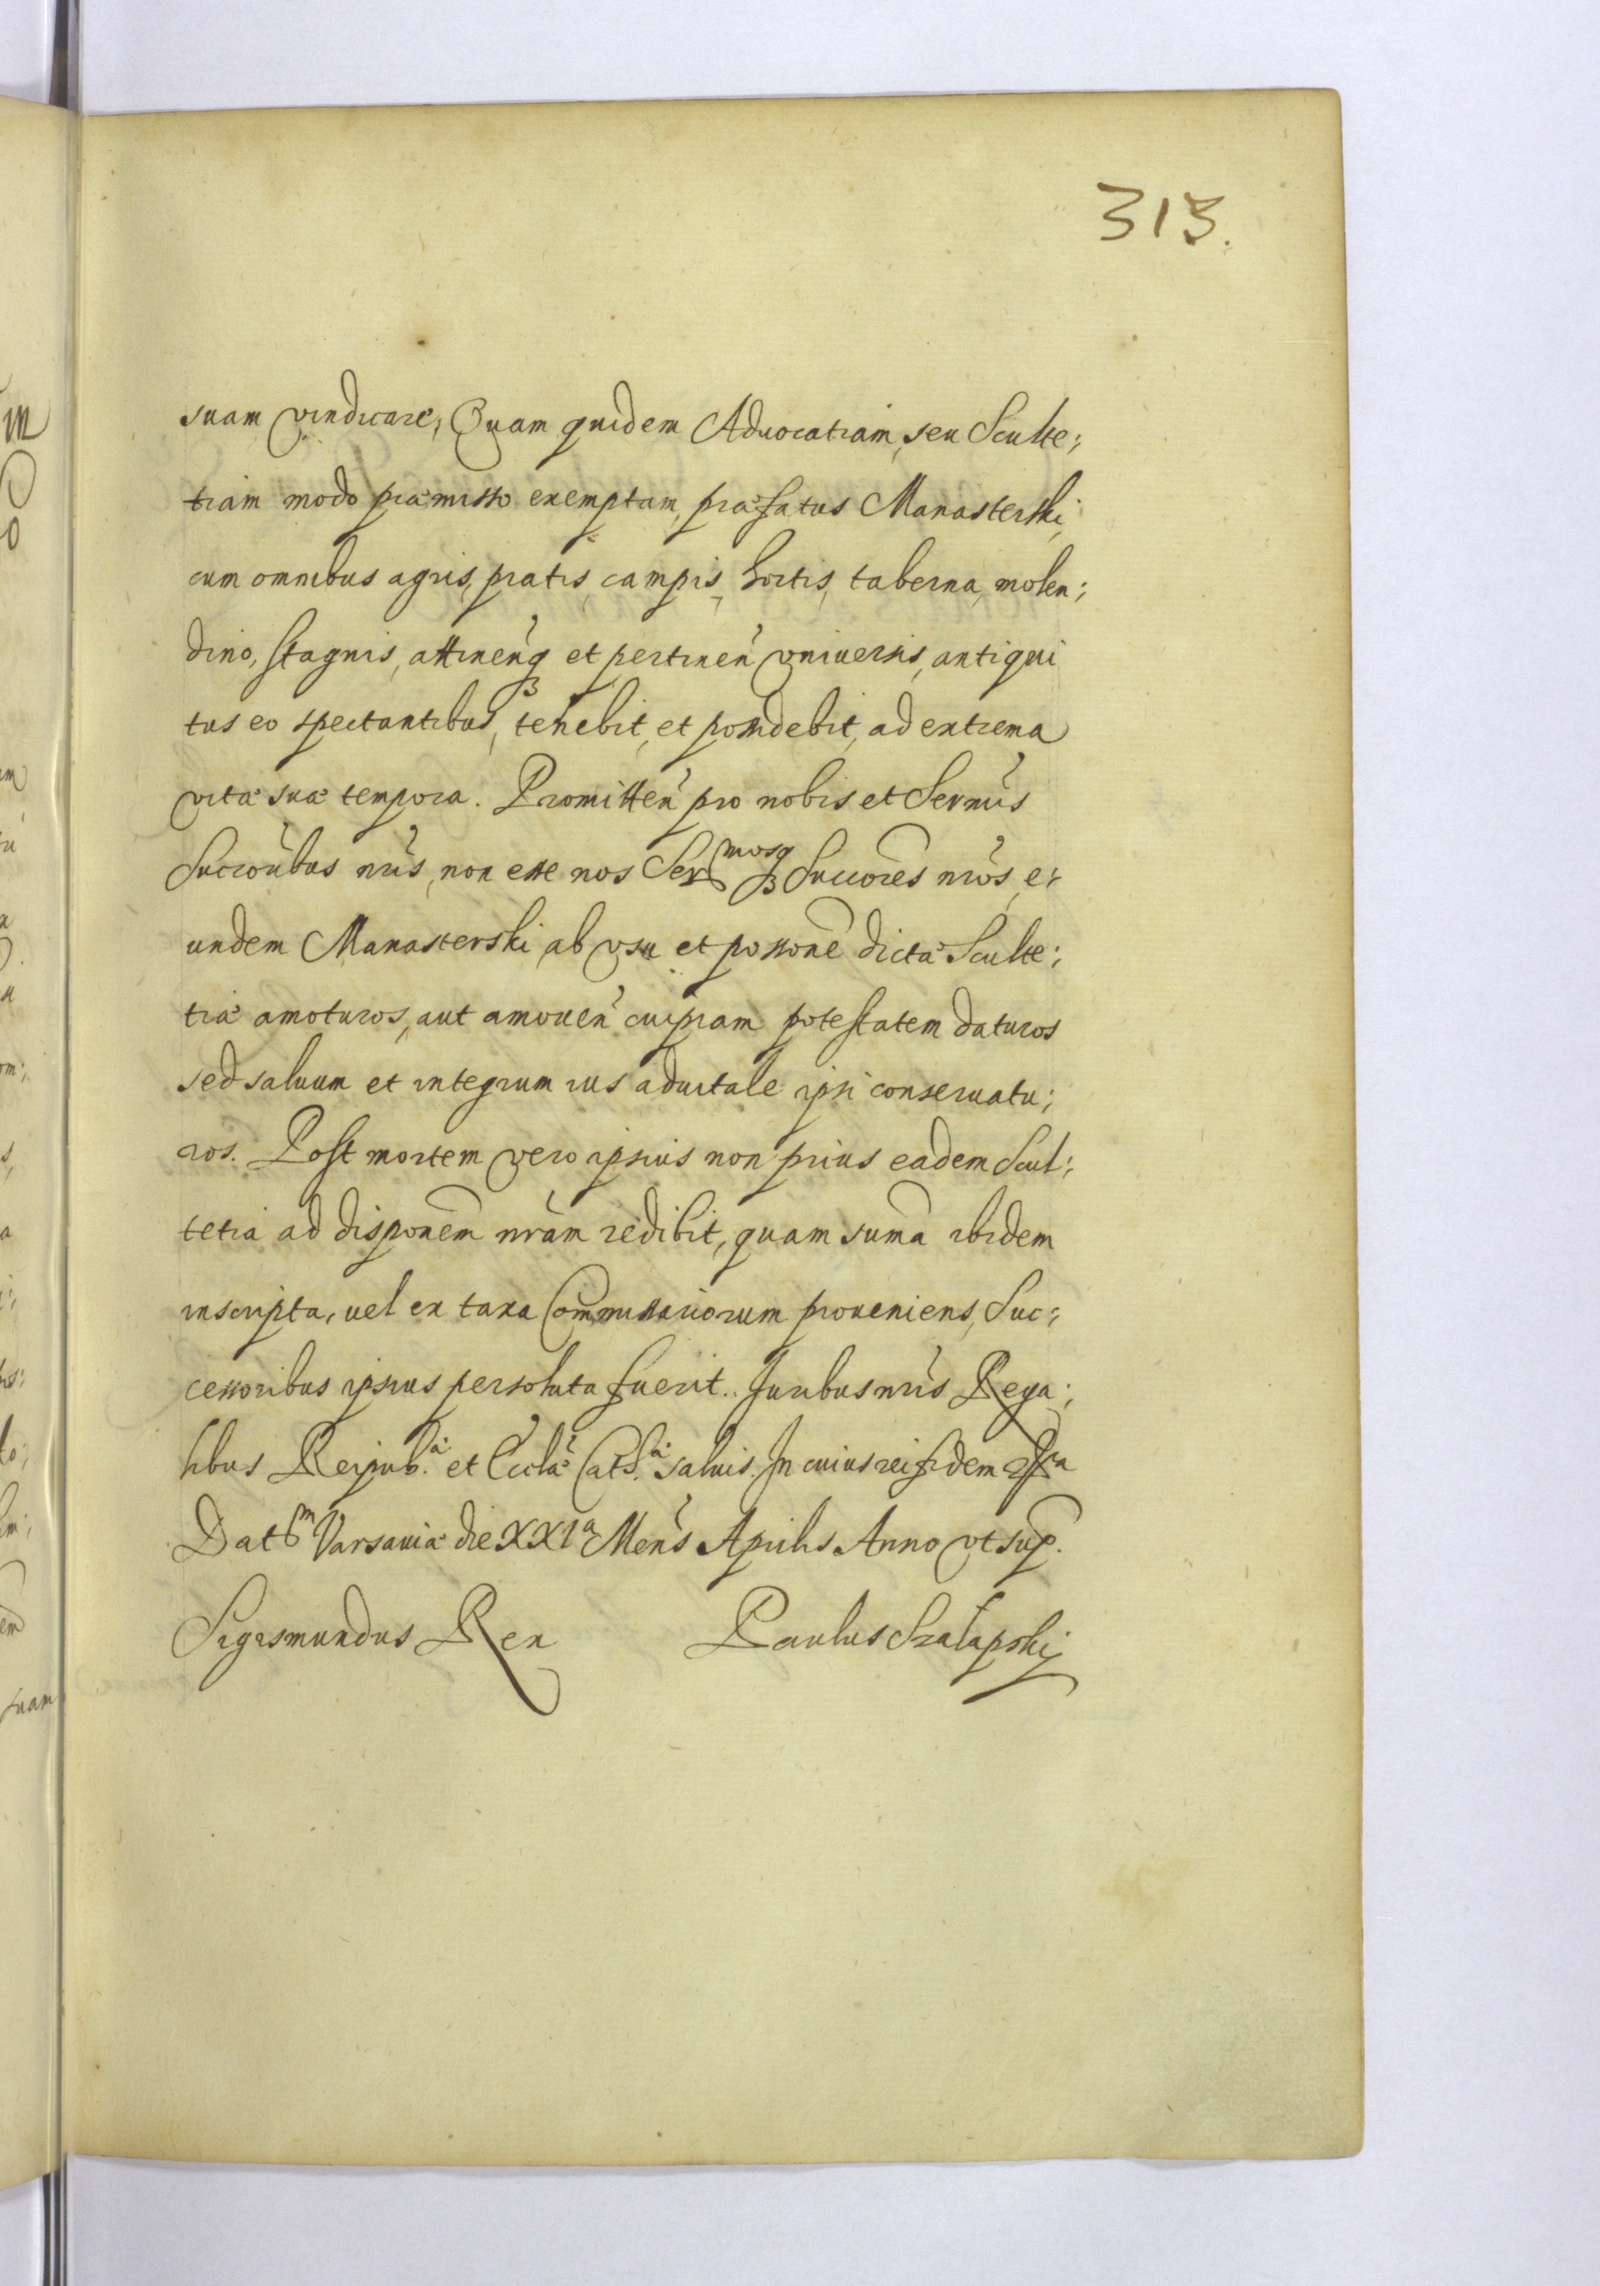 313.
suam vindicare, Quam quidem Aduocatiam, seu Sculte;
tiam modo præmisso exemptam, præfatus Manasterski,
cum omnibus agris, pratis, campis, hortis, taberna, molen;
dino, stagnis, attineñq3 et pertineñ vniuersis, antiqui
tus eo spectantibus, tenebit, et possidebit, ad extrema
vitæ suæ tempora. Promitteñ pro nobis et Sermis
Succoribus nris, non esse nos Sermosq3 Succores nros, e;
undem Manasterski ab vsu et possone dictæ Sculte;
tiæ amoturos, aut amoueñ cuipiam potestatem daturos
sed saluum et integrum ius aduitale ipsi conseruatu;
ros. Post mortem vero ipsius non prius eadem Scul;
tetia ad disponem nram redibit, quam suma ibidem
inscripta, uel ex taxa Commissariorum proueniens, Suc;
cessoribus ipsius persoluta fuerit. Juribus nris Rega;
libus Reipub.æ et Ecclæ Cath.æ saluis. In cuius rei fidem
Datm Varsauiæ die XXIa Mens Aprilis Anno vt sup.
Sigismundus Rex Paulus Szałapskij
m
suam